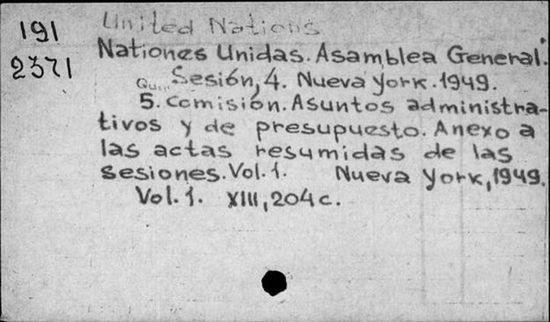 191
2371
United Nations
Nationes Unidas. Asamblea General.
Sesión, 4. Nueva York. 1949.
5. Comisión. Asuntos administra-
tivos y de presupuesto. Anexo a
las actas resumidas de las
sesiones. Vol. 1. Nueva York, 1949.
Vol. 1. XIII, 204 c.